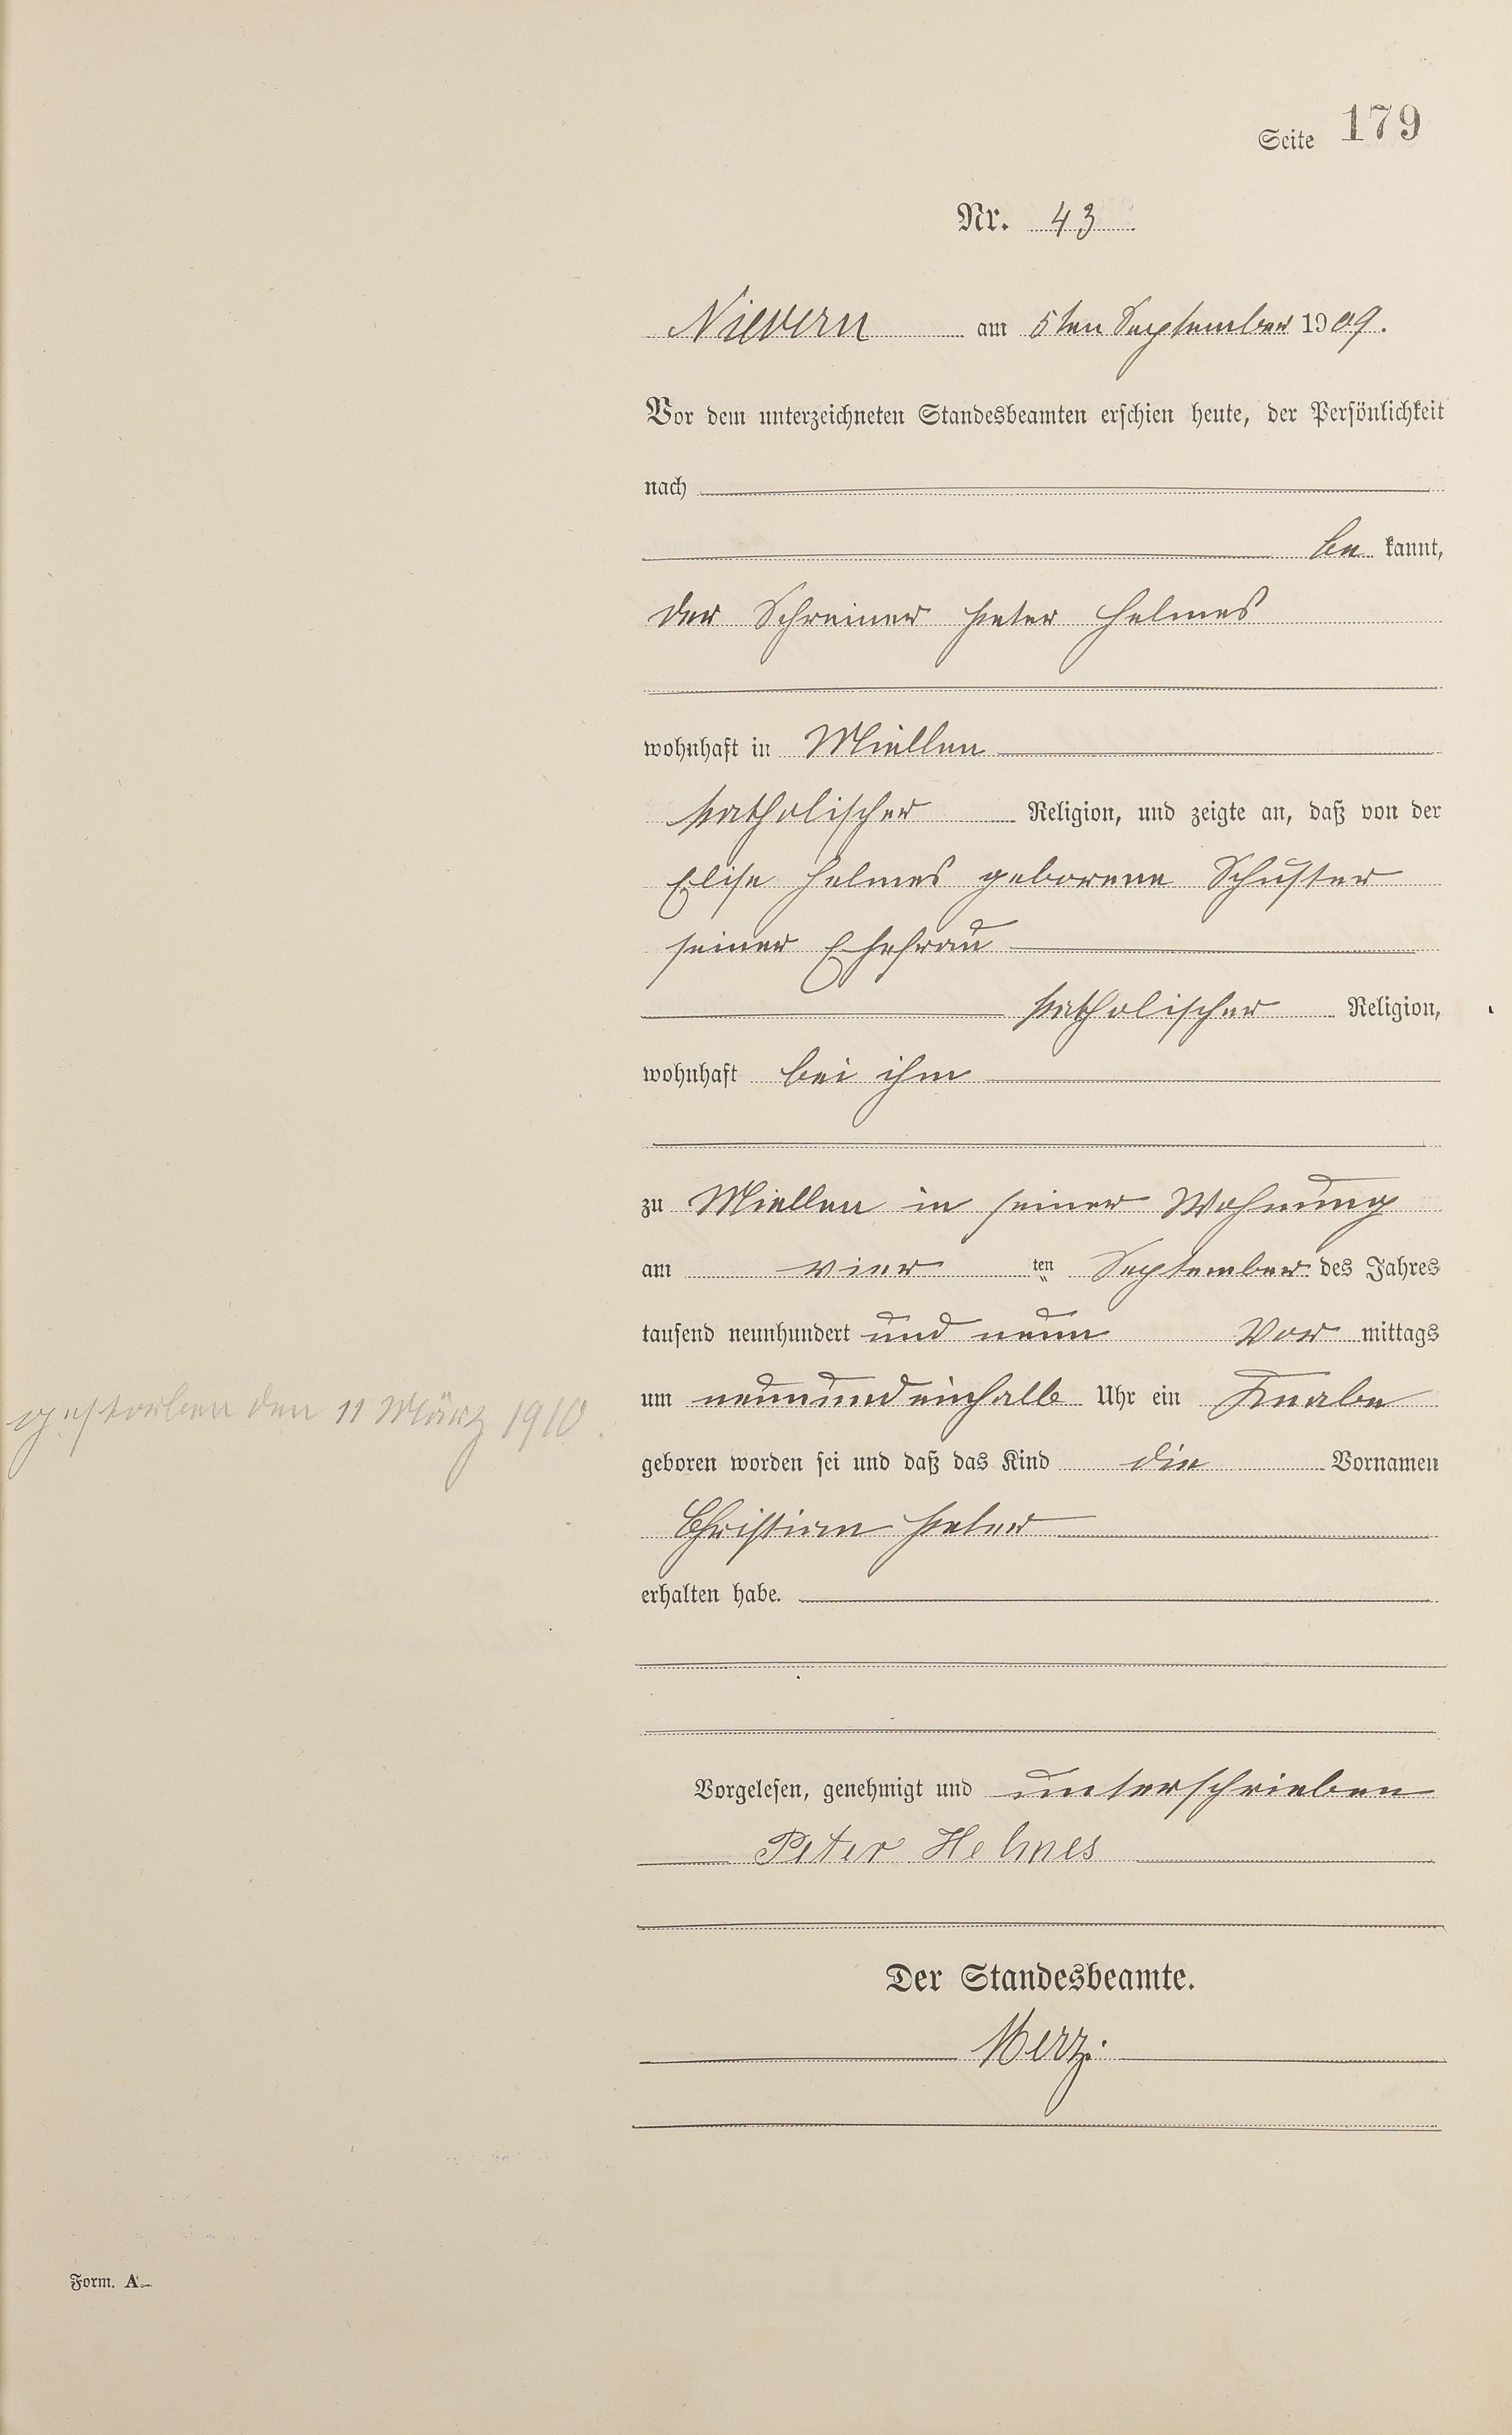 Seite 179
Nr. 43
Nievern am 5ten September 1909.
Vor dem unterzeichneten Standesbeamten erschien heute, der Persönlichkeit
nach
be kannt,
der Schreiner Peter Helmes
wohnhaft in Miellen
katholischer Religion, und zeigte an, daß von der
Elise Helmes geborene Schuster
seiner Ehefrau
katholischer Religion,
wohnhaft bei ihm
zu Miellen in seiner Wohnung
am vier ten September des Jahres
tausend neunhundert und neun Vor mittags
um neunundeinhalb Uhr ein Knabe
gestorben den 11 März 1910.
geboren worden sei und daß das Kind die Vornamen
Christian Peter
erhalten habe.
Vorgelesen, genehmigt und unterschrieben
Peter Helmes
Der Standesbeamte.
Merz.
Form. A.